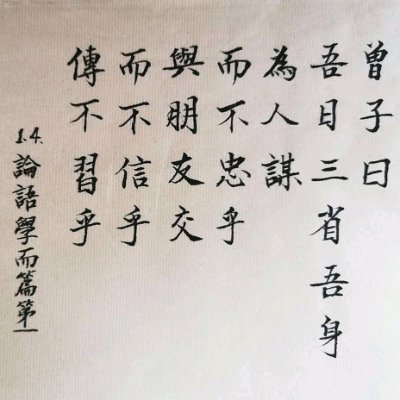 曾子曰
吾日三省吾身
為人謀
而不忠乎
與朋友交
而不信乎
傳不習乎
1.4.論語學而篇第一